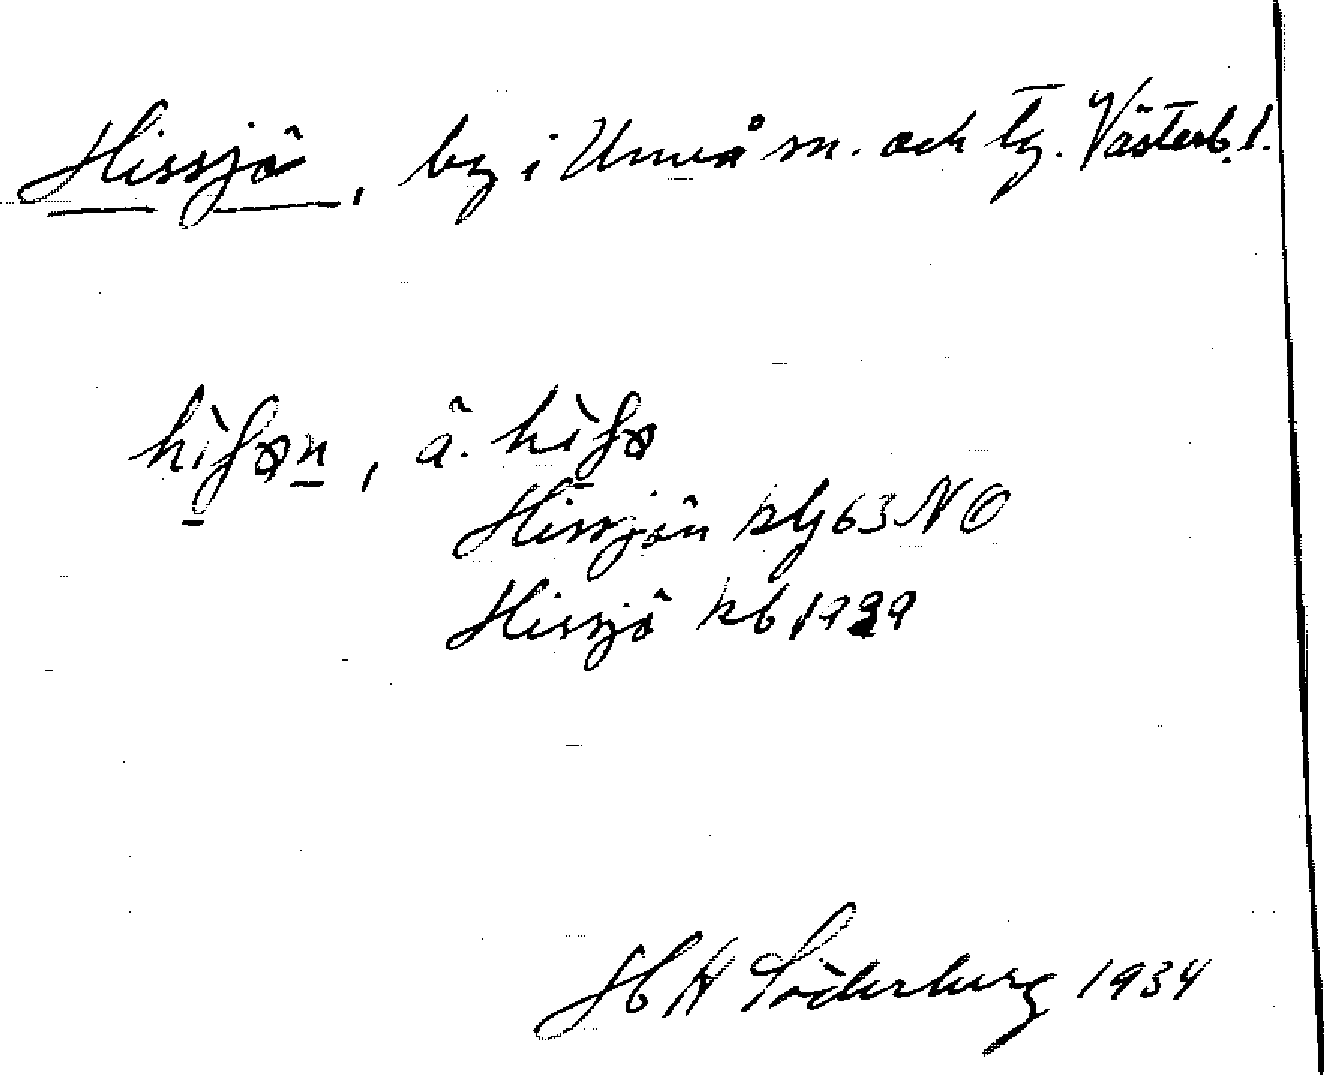 Hissjö, by i Umeå sn. och tg. Västerb. l.
hìʃøn, ä. hìʃø
Hissjön kbj 63 NO
Hissjö kb 1929
H H Söderberg 1934